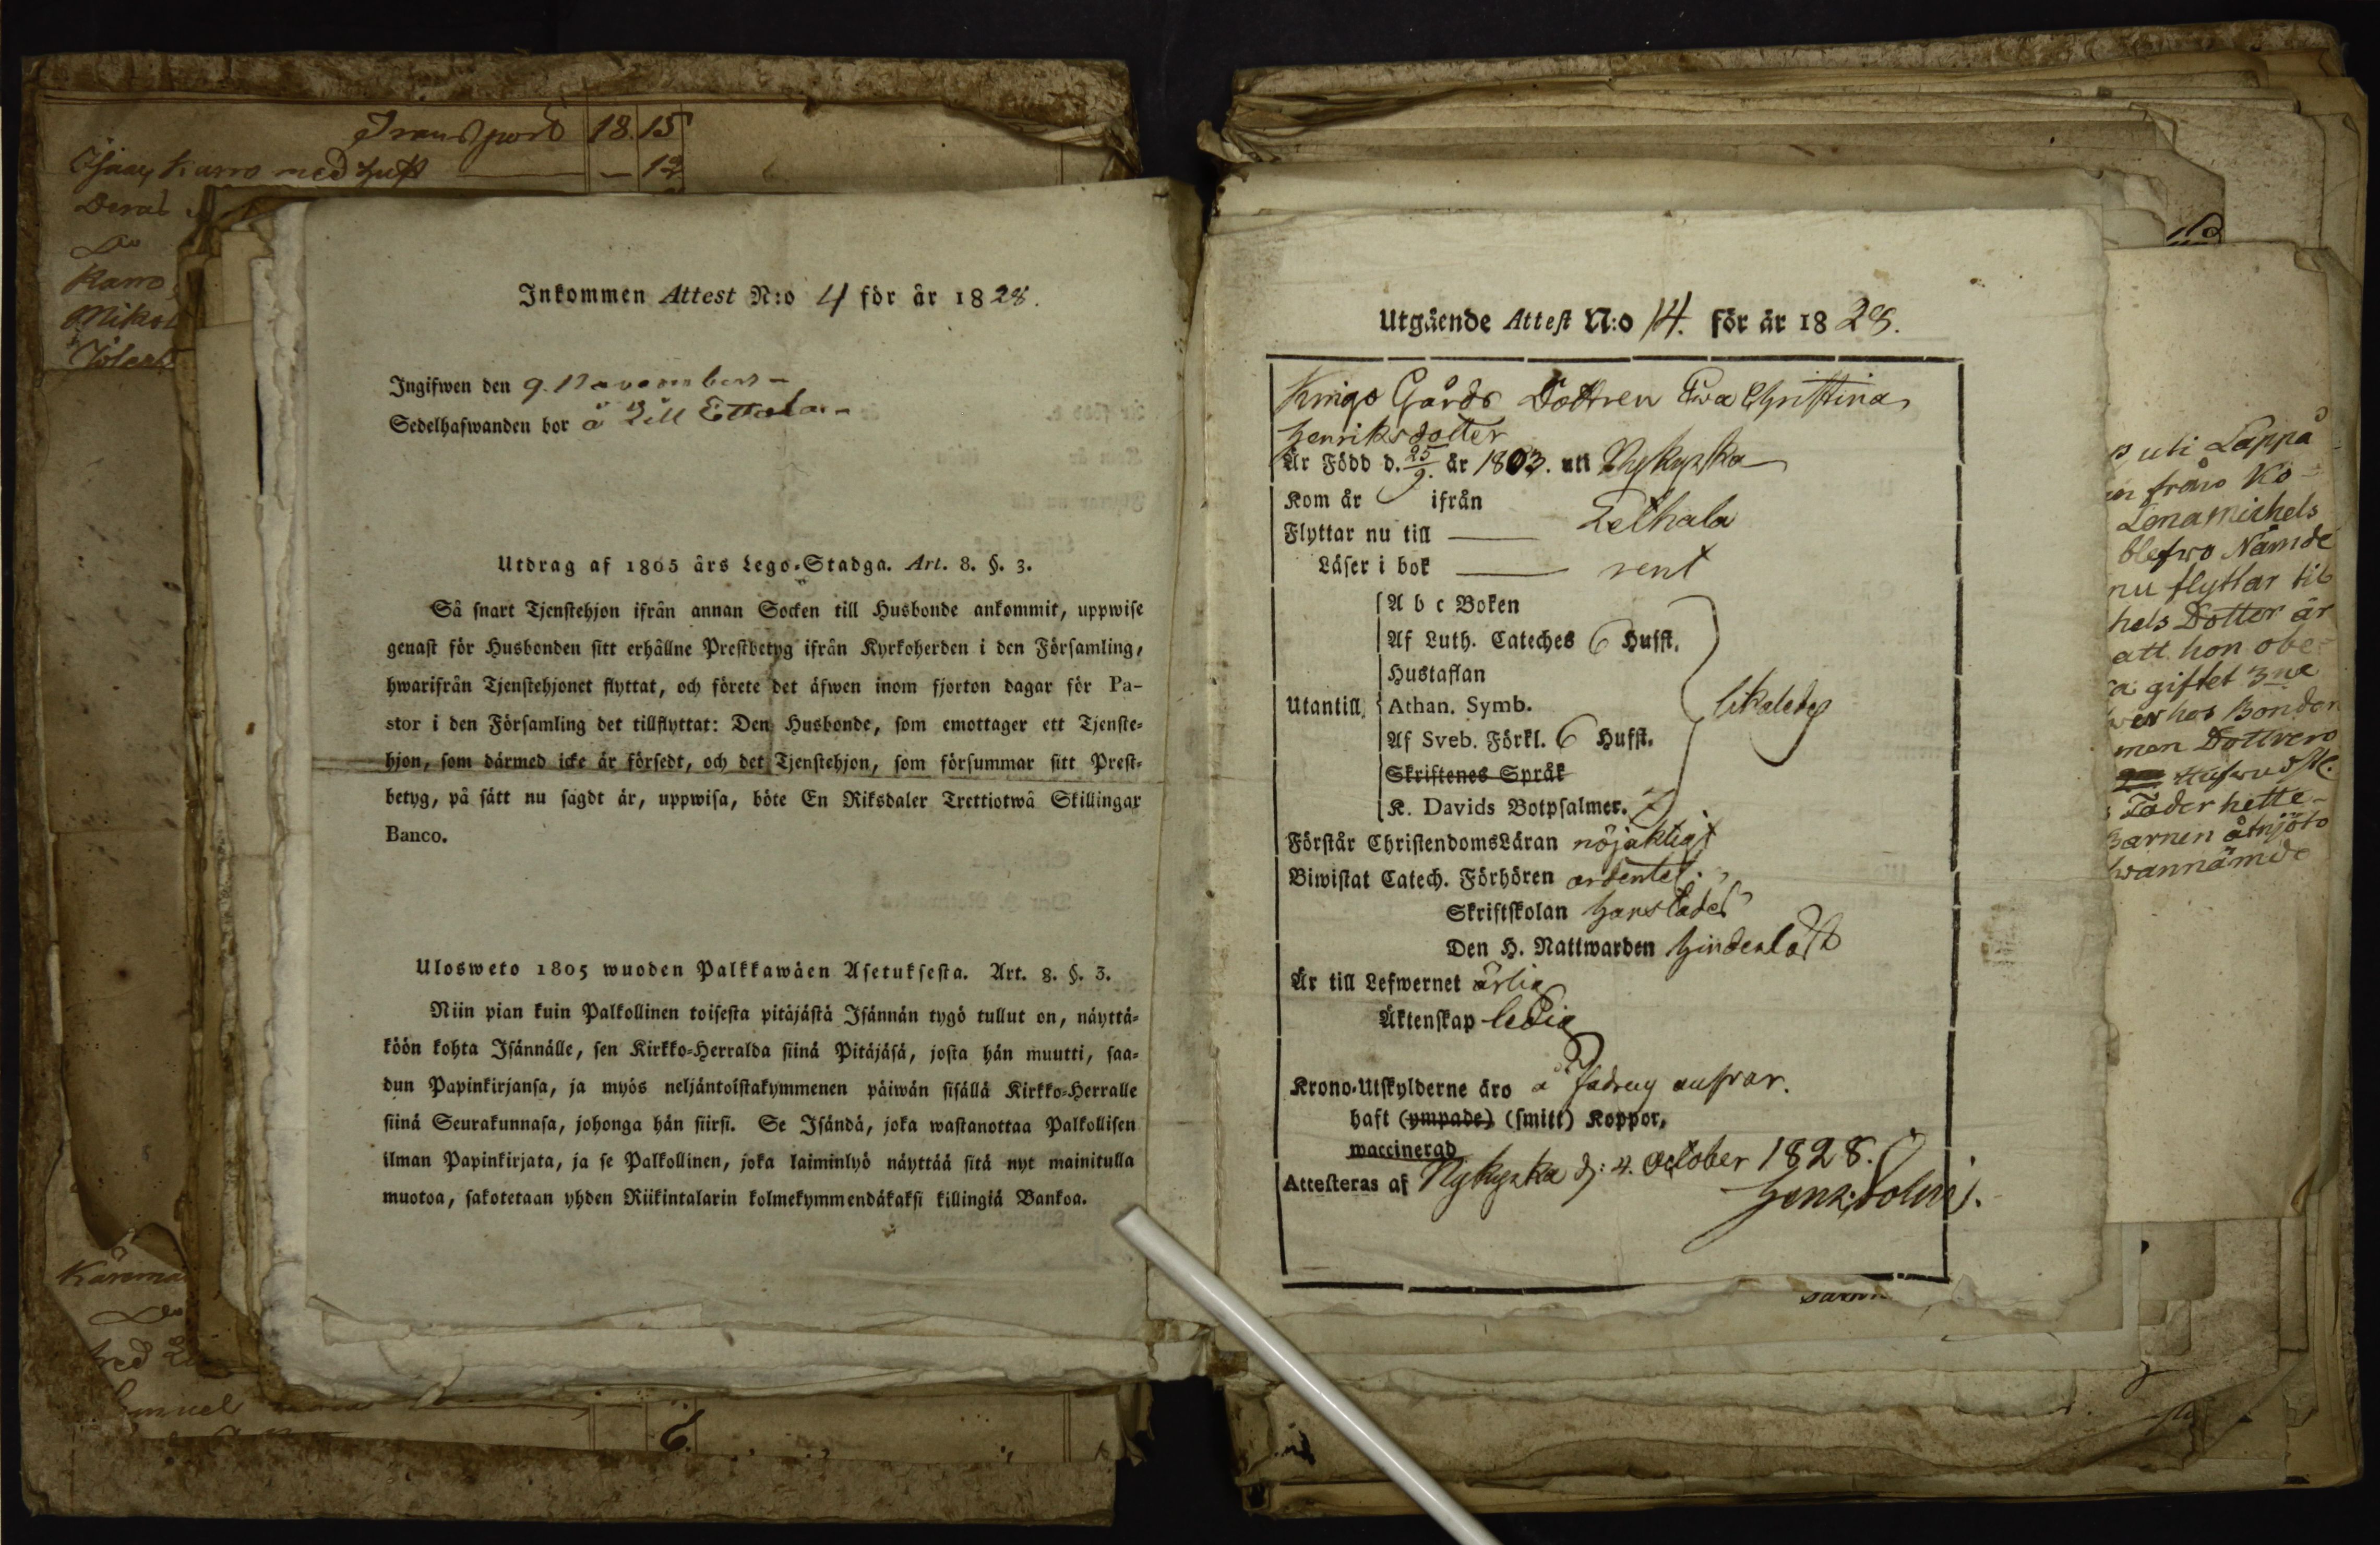 Transport 18. 15
Karro med hust — 12
Karro
Inkommen Attest N:o 4 för år 1828.
Ingifwen den 9. November
Sedelhafwanden bor å Lill Ettala
Utdrag af 1805 års Lego-Stadga. Art. 8. §. 3.
Så snart Tjenstehjon ifrån annan Socken till Husbonde ankommit, uppwise
genast för Husbonden sitt erhållne Prestbetyg ifrån Kyrkoherden i den Församling,
hwarifrån Tjenstehjonet flyttat, och förete det äfwen inom fjorton dagar för Pa-
stor i den Församling det tillflyttat: Den Husbonde, som emottager ett Tjenste-
hjon, som därmed icke är försedt, och det Tjenstehjon, som försummar sitt Prest-
betyg, på sätt nu sagdt är, uppwisa, böte En Riksdaler Trettiotwå Skillingar
Banco.
Ulosweto 1805 wuoden Palkkawäen Asetuksesta. Art. 8. §. 3.
Niin pian kuin Palkollinen toisesta pitäjästä Isännän tygö tullut on, näyttä-
köön kohta Isännälle, sen Kirkko-Herralda siinä Pitäjäsä, josta hän muutti, saa-
dun Papinkirjansa, ja myös neljäntoistakymmenen päiwän sisällä Kirkko-Herralle
siinä Seurakunnasa, johonga hän siirsi. Se Isändä, joka wastanottaa Palkollisen
ilman Papinkirjata, ja se Palkollinen, joka laiminlyö näyttää sitä nyt mainitulla
muotoa, sakotetaan yhden Riikintalarin kolmekymmendäkaksi killingiä Bankoa.
6.
Utgående Attest N:o 14. för år 1828.
Krigo Gårds Dottren Ewa Christina
Henriksdotter
Är Född d. 25/9. år 1803. uti Nykyrka
Kom år ifrån
Flyttar nu till — Lethala
Läser i bok — rent
A b c Boken
Af Luth. Cateches 6 Hufst.
Hustaflan
Utantill, Athan. Symb. likaledes
Af Sveb. Förkl. 6 Hufst.
Skriftenes Språk
K. Davids Botpsalmer. 7
Förstår ChristendomsLäran nöjaktigt
Biwistat Catech. Förhören ordentel.
Skriftskolan
Den H. Nattwarden
Är till Lefwernet ärlig
Äktenskap ledig
Krono-Utskylderne äro å
haft (ympade) (smitt) Koppor,
waccinerad
Attesteras af Nykyrka d: 4. October 1828.
uti Lappå
från Ko-
Lena Michels
blefwo Nämde
nu flyttar til
hels Dotter är
att hon obe-
giftet 3ne
hos Bonden
man Dottren
Fader hette
Barnen åtnjöto
wannämde